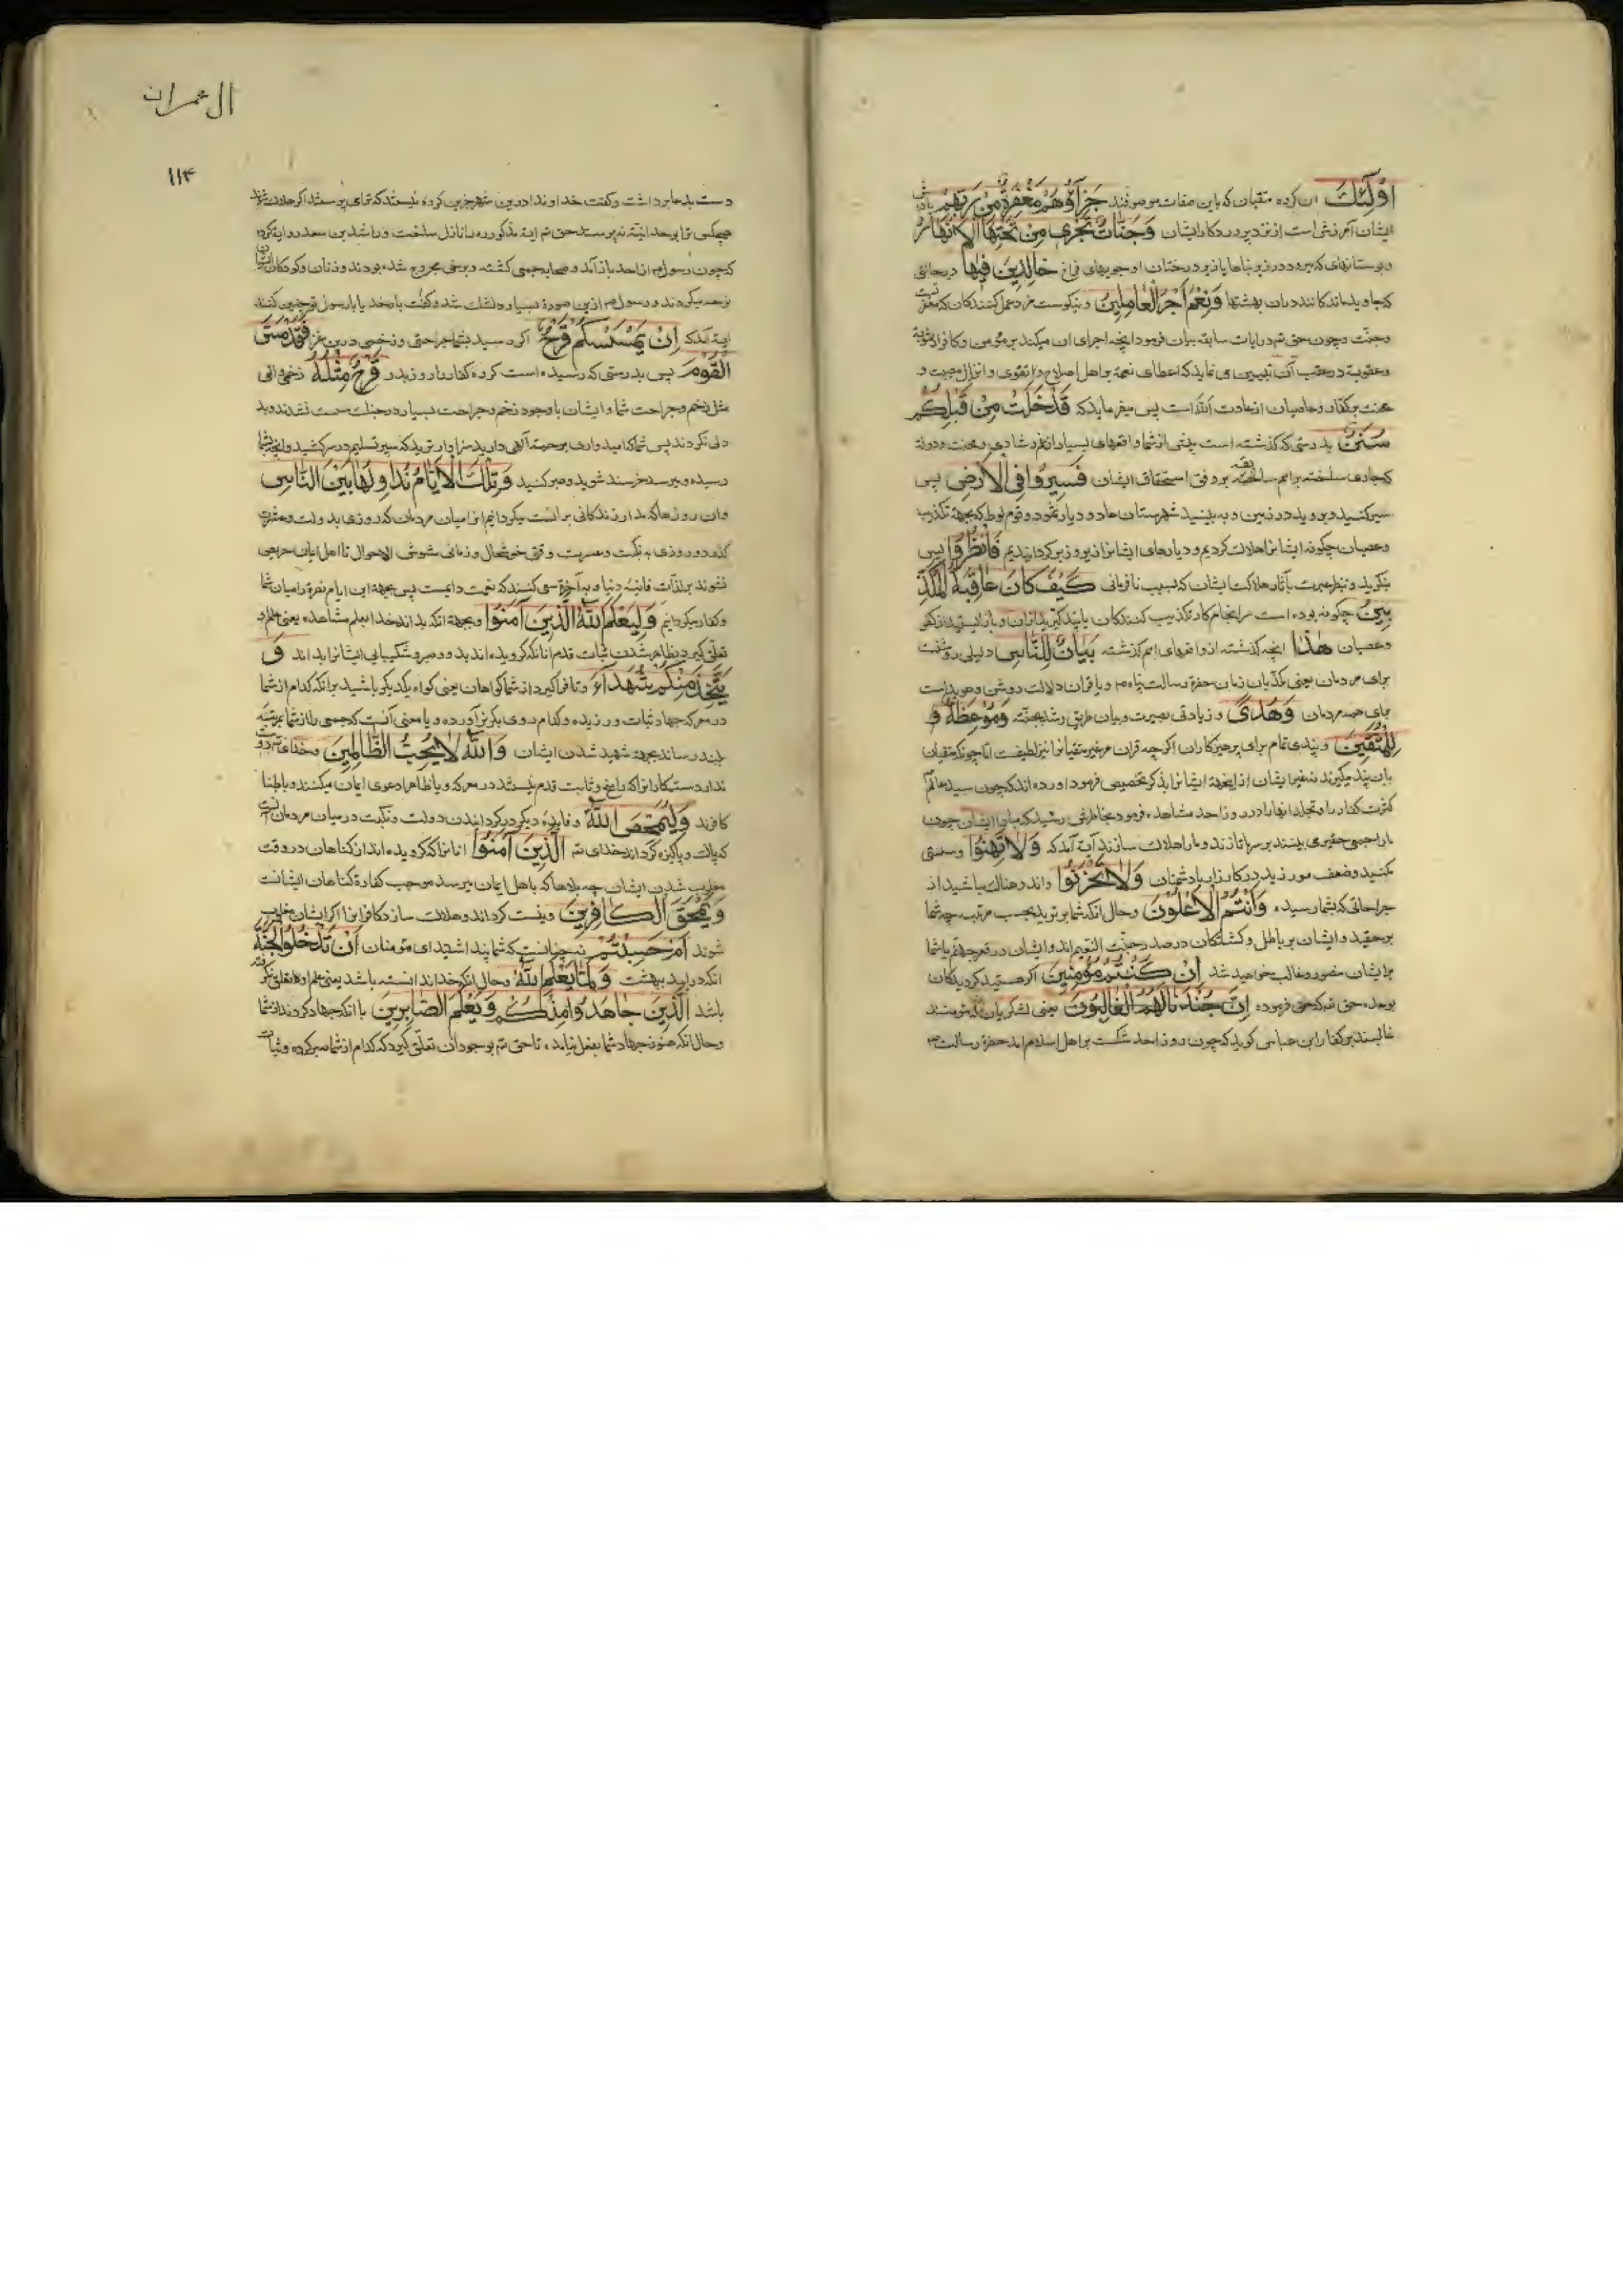 اُولٰئِكَ ان کروه متقیان که باین صفات موصوفند جَزَآؤُهُمْ مَغْفِرَةٌ مِنْ رَبِّهِمْ پاداش
ایشان آمرزشی است از نزد پروردکار ایشان وَجَنَّاتٌ تَجْرِي مِنْ تَحْتِهَا الْاَنْهَارُ
و بوستانهای که میرود در زیر بناها یا زیر درختان او جویهای فراخ خَالِدِينَ فِيهَا در حالتی
که جاوید ماندکانند در ان بهشتها وَنِعْمَ اَجْرُ الْعَامِلِينَ و نیکوست مزد عمل کنندکان که مغفرتست
و جنت و چون حق تم در ایات سابقه بیان فرمود انچه اجرای ان میکند بر مؤمن و کافر از مثوبة
و عقوبة در عقب آن تبیین می نماید که اعطای نعمة بر اهل اصلاح و تقوی و انزال مصیبت و
محنت بر کفار و عاصیان از عادت الله است پس میفرماید که قَدْ خَلَتْ مِنْ قَبْلِكُمْ
سُنَنٌ بدرستی که کذشته است پیش از شما واقعهای بسیار از غم و شادی و محنت و دولة
که جاری ساخته بر امم سابقه بر وفق استحقاق ایشان فَسِيرُوا فِي الْاَرْضِ پس
سیر کنید و بروید در زمین و به بینید شهرستان عاد و دیار ثمود و قوم لوط که بجهة تکذیب
و عصیان چکونه ایشانرا هلاک کردیم و دیارهای ایشانرا زیر و زبر کردانیدیم فَانْظُرُوا پس
بنکرید و نظر عبرت بآثار هلاکت ایشان که بسبب نافرمانی كَيْفَ كَانَ عَاقِبَةُ الْمُكَذِّ
بِينَ چکونه بوده است سرانجام کار تکذیب کنندکان یا پند کیرید از ان و باز ایستید از کفر
و عصیان هٰذَا انچه کذشته از واقعهای امم کذشته بَيَانٌ لِلنَّاسِ دلیلی روشنست
برای مردمان یعنی مکذبان زمان حضرة رسالت پناه ص و یا قران دلالت روشن و هویداست
برای همه مردمان وَهُدًى و زیادتی بصیرت و بیان طریق رشد بجنة وَمَوْعِظَةٌ
لِلْمُتَّقِينَ و پندی تمام برای پرهیزکاران اکرچه قران مر غیر متقیانرا نیز لطیفست اما چونکه متقیان
بان پند میکیرند نه غیر ایشان از اینجهة ایشانرا بذکر تخصیص فرمود اورده اند که چون سید عالم
کثرت کفار را و تجلد انها را در روز احد مشاهده فرمود بخاطرش رسید که مبادا ایشان چون
مارا جمعی حقیر می بینند بر سر ما تازند و مارا هلاک سازند آیه آمد که وَلَا تَهِنُوا و سستی
مکنید و ضعف مورزید در کارزار با دشمنان وَلَا تَحْزَنُوا و اندوهناک مباشید از
جراحاتی که بشما رسیده وَاَنْتُمُ الْاَعْلَوْنَ و حال انکه شما برترید بحسب مرتبه چه شما
بر حقید و ایشان بر باطل و کشتکان در صدر جنت النعیم اند و ایشان در قعر جهنم یا شما
بر ایشان منصور و غالب خواهید شد اِنْ كُنْتُمْ مُؤْمِنِينَ اکر هستید کرویدکان
بوعده حق تم که حق فرموده اِنَّ جُنْدَنَا لَهُمُ الْغَالِبُونَ یعنی لشکریان که مؤمنند
غالبند بر کفار ابن عباس کوید که چون روز احد شکست بر اهل اسلام امد حضرة رسالت ص
ال عمران
۱۱۴
دست بدعا برداشت و کفت خداوندا درین شهر جزین کروه نیستند که ترا می پرستند اکر هلاک شوند
هیچکس ترا بوحدانیة نپرستد حق تم ایة مذکوره را نازل ساخت و راشد بن سعد روایة کرده
که چون رسول ص از احد باز آمد و صحابه جمعی کشته و برخی مجروح شده بودند و زنان و کودکان ایشان
نوحه میکردند و رسول ص ازین صورة بسیار دلتنک شد و کفت بار خدایا با رسول تو چنین کنند
ایة آمد که اِنْ يَمْسَسْكُمْ قَرْحٌ اکر رسید بشما جراحتی و زخمی درین غزا فَقَدْ مَسَّ
الْقَوْمَ پس بدرستی که رسیده است کروه کفار را روز بدر قَرْحٌ مِثْلُهُ زخمی و المی
مثل زخم و جراحت شما و ایشان با وجود زخم و جراحت بسیار در جنک سست نشدند و بد
دلی نکردند پس شما که امیدواری برحمة آلهی دارید سزاوارترید که سپر تسلیم در سر کشید و انچه بشما
رسیده و میرسد خرسند شوید و صبر کنید وَتِلْكَ الْاَيَّامُ نُدَاوِلُهَا بَيْنَ النَّاسِ
و ان روزها که مدار زندکانی بر انست میکردانیم انرا میان مردمان که روزی بدولت و عشرت
کذرد و روزی به نکبت و عسرت و وقتی خوشحال و زمانی مشوش الاحوال تا اهل ایمان حریص
نشوند بر لذات فانیه دنیا و به آخرة سعی کنند که نعمت دائمست پس بجهة این ایام نصرة را میان شما
و کفار میکردانیم وَلِيَعْلَمَ اللّٰهُ الَّذِينَ اٰمَنُوا و بجهة انکه بداند خدا بعلم مشاهده یعنی علم او
تعلق کیرد بظاهر شدن ثبات قدم انانکه کرویده اند بدو و صبر و شکیبایی ایشانرا بداند وَ
يَتَّخِذَ مِنْكُمْ شُهَدَآءَ و تا فرا کیرد از شما کواهان یعنی کواه یکدیکر باشید بر انکه کدام از شما
در معرکه جهاد ثبات ورزیده و کدام روی بکریز آورده و یا معنی آنست که جمعی را از شما بمرتبه
بلند رساند بجهة شهید شدن ایشان وَاللّٰهُ لَا يُحِبُّ الظَّالِمِينَ و خدای تم دوست
ندارد ستمکارانرا که راسخ و ثابت قدم نیستند در معرکه و یا ظاهرا دعوی ایمان میکنند و باطنا
کافرند وَلِيُمَحِّصَ اللّٰهُ و فایده دیکر در کردانیدن دولت و نکبت در میان مردمان انست
که پاک و پاکیزه کرداند خدای تم الَّذِينَ اٰمَنُوا انانرا که کرویده اند از کناهان در وقت
مغلوب شدن ایشان چه بلاها که باهل ایمان میرسد موجب کفارة کناهان ایشانست
وَيَمْحَقَ الْكَافِرِينَ و نیست کرداند و هلاک سازد کافرانرا اکر ایشان مغلوب
شوند اَمْ حَسِبْتُمْ نه چنانست که شما پنداشتید ای مؤمنان اَنْ تَدْخُلُوا الْجَنَّةَ
انکه در اید ببهشت وَلَمَّا يَعْلَمِ اللّٰهُ و حال انکه خدا ندانسته باشد یعنی علم او تعلق نکرفته
باشد الَّذِينَ جَاهَدُوا مِنْكُمْ وَيَعْلَمَ الصَّابِرِينَ با انکه جهاد کردند از شما
و حال انکه هنوز جهاد شما بفعل نیامده تا حق تم بوجود آن تعلق کیرد که کدام از شما صبر کرده و ثبات